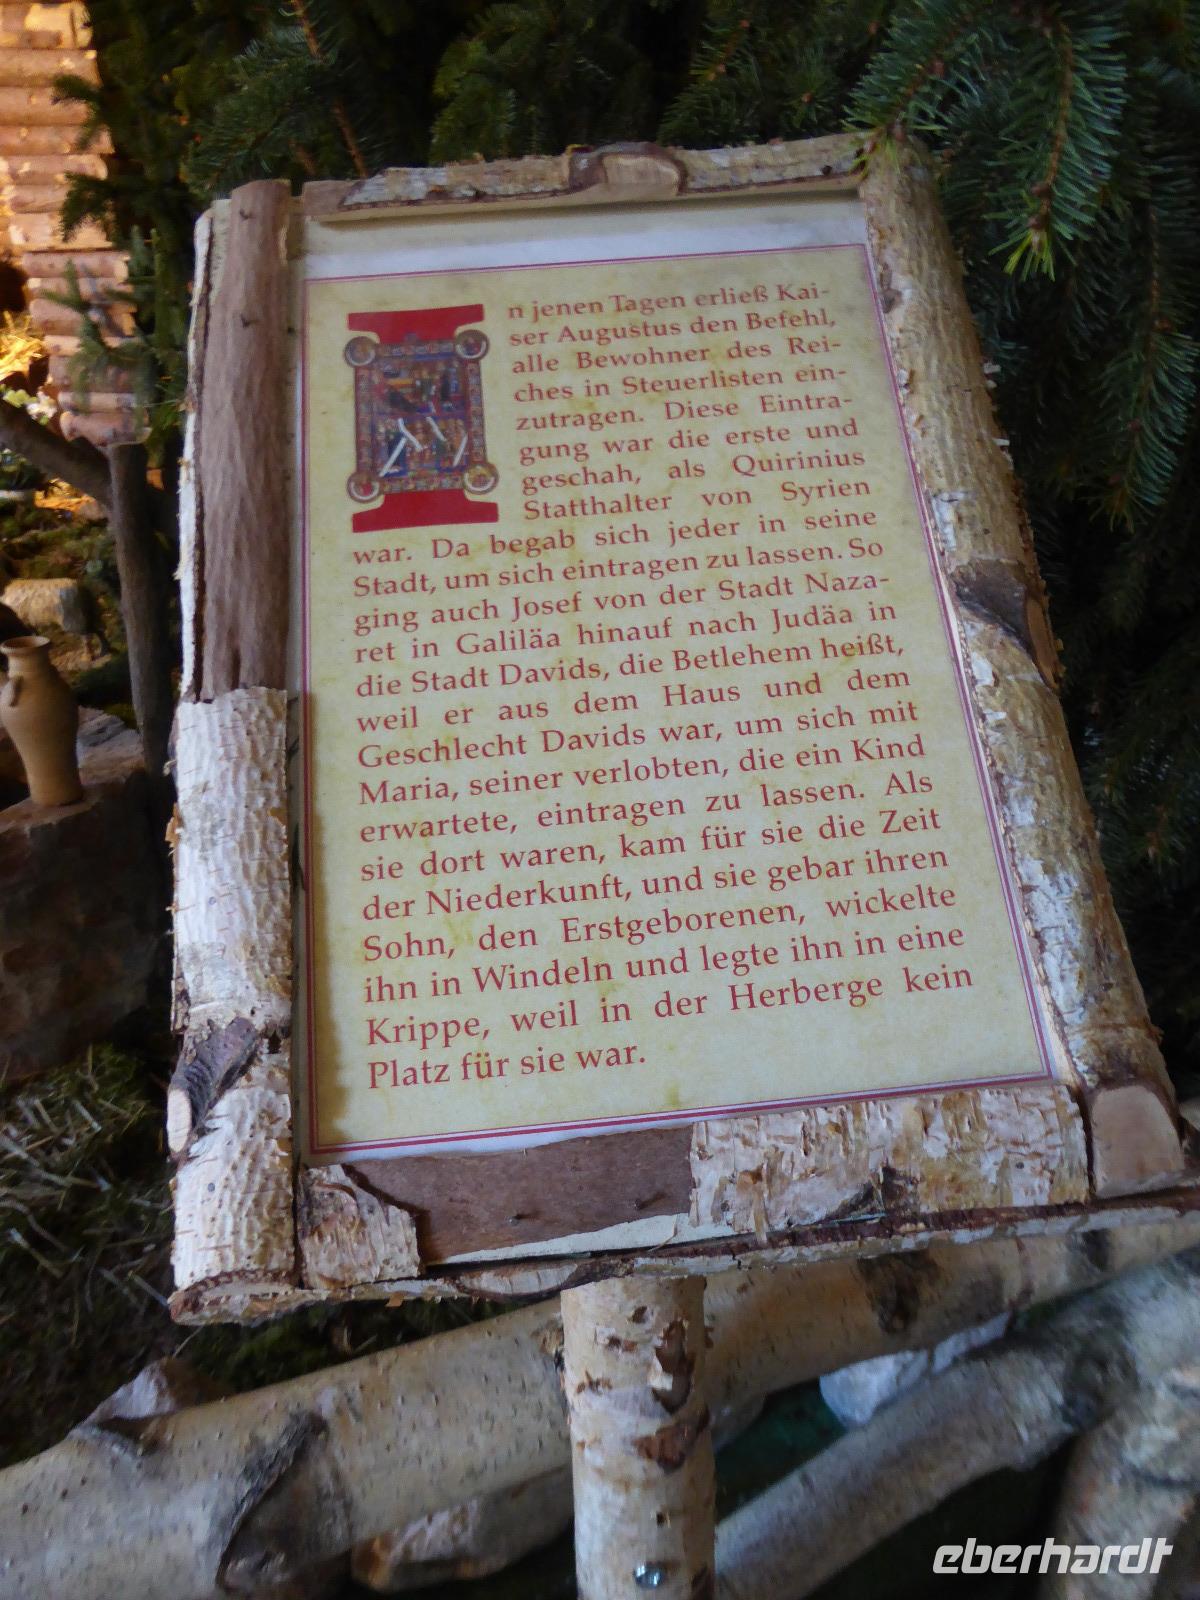 In jenen Tagen erließ Kai-
ser Augustus den Befehl,
alle Bewohner des Rei-
ches in Steuerlisten ein-
zutragen. Diese Eintra-
gung war die erste und
geschah, als Quirinius
Statthalter von Syrien
war. Da begab sich jeder in seine
Stadt, um sich eintragen zu lassen. So
ging auch Josef von der Stadt Naza-
ret in Galiläa hinauf nach Judäa in
die Stadt Davids, die Betlehem heißt,
weil er aus dem Haus und dem
Geschlecht Davids war, um sich mit
Maria, seiner verlobten, die ein Kind
erwartete, eintragen zu lassen. Als
sie dort waren, kam für sie die Zeit
der Niederkunft, und sie gebar ihren
Sohn, den Erstgeborenen, wickelte
ihn in Windeln und legte ihn in eine
Krippe, weil in der Herberge kein
Platz für sie war.
eberhardt